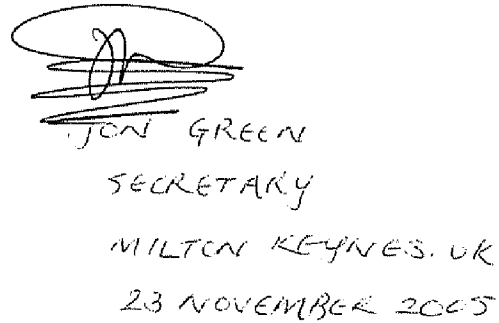 JON GREEN
SECRETARY
MILTON KEYNES. UK
23 NOVEMBER 2005